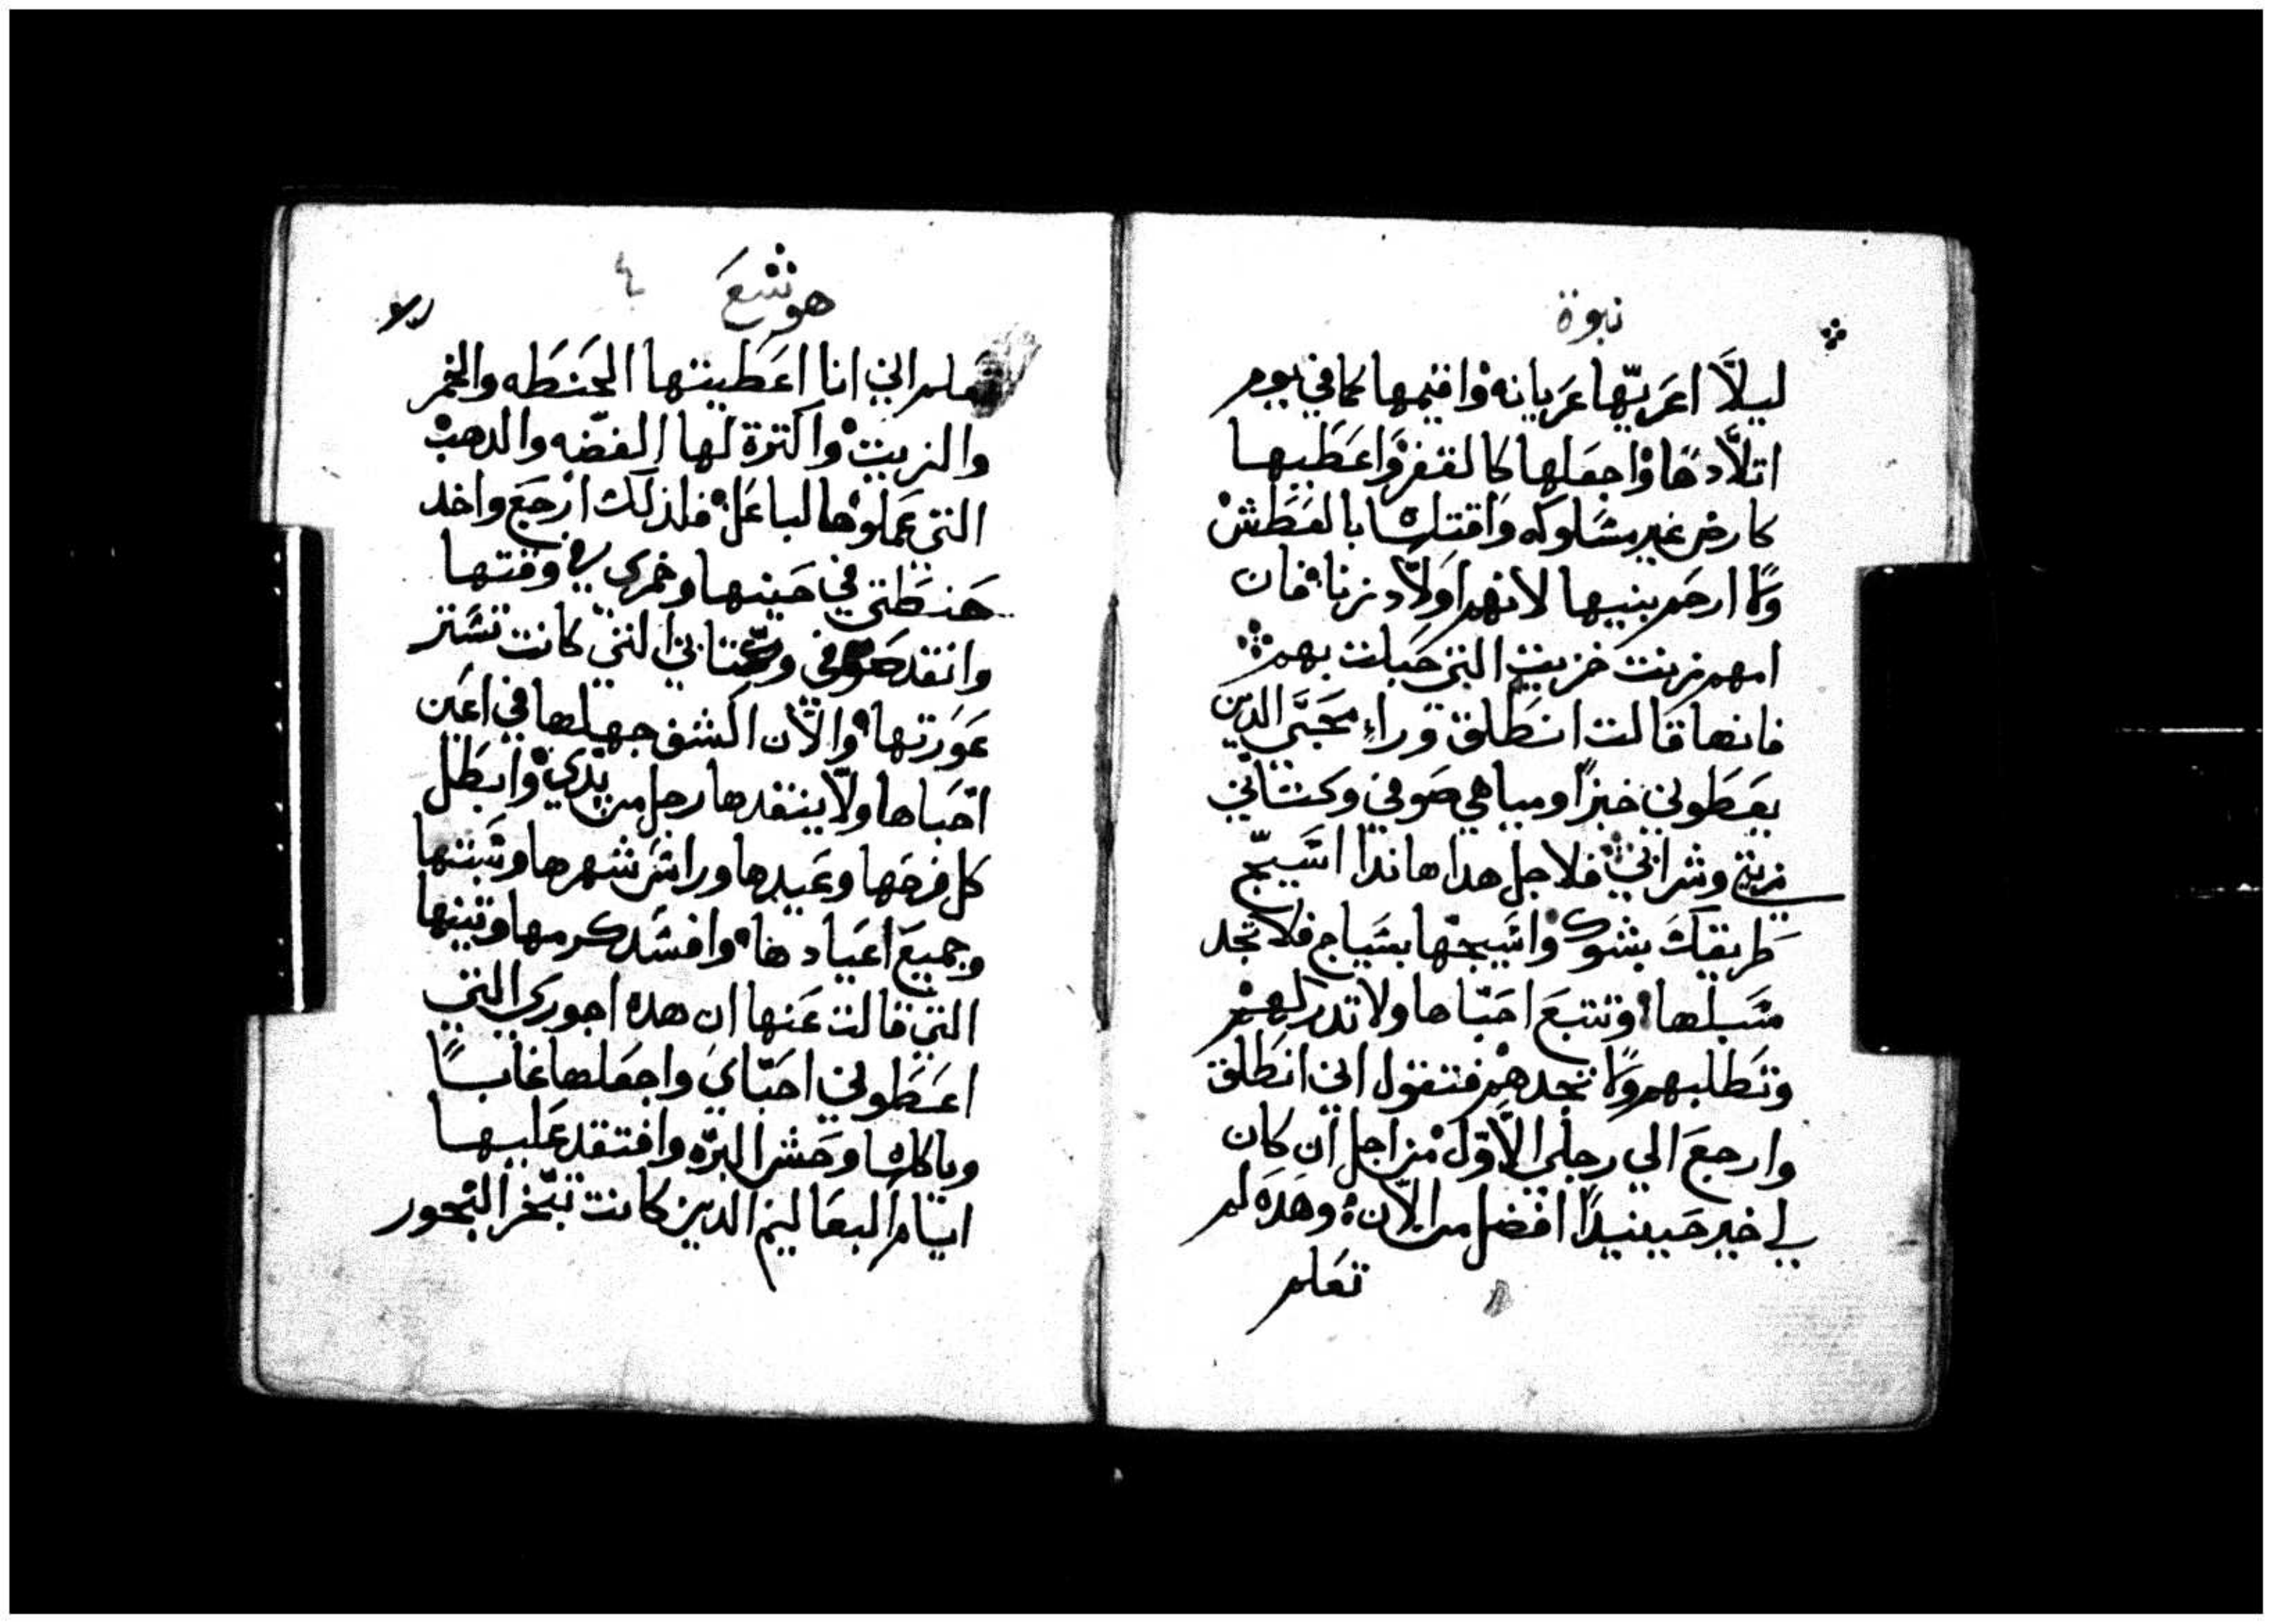 نبوة
ليلاَّ اعَريّها عَريانه واقيمها كما في يوم
اتلاَّدهَا واجعَلها كالقفر واعَطَيها
كارض غير مسَلوكه واقتلها بالعَطَش
ولا ارحم بنيها لانهم اولاَّد زنا فان
امهم زنت خزيت التي حَبلت بهم
فانها قالت انطَلق وراء محَبَّي الدين
يعَطوني خبزًا ومياهي صَوفي وكتناني
زيتي وشرابي فلاجل هدا هاندا اسَيّج
طَريقكَ بشوك واسَيجّها بسَياج فلا تجد
سَبلها وتتبعَ احَبّاها ولا تدركهم
وتطَلبهم ولا تجدهم فتقول اني انطَلق
وارجعَ الي رجلي الاَّوّل من اجل ان كان
لي خير حَينيدًا افضل من الاَّن وهَده لم
تعَلم
هوشعَ
تعَلم اني انا اعَطَيتها الحَنطَه والخمر
والزيت واكترة لها الفضّه والدهب
التي عَملوها لباعَل فلذلك ارجَع واخد
حَنطَتي في حَينها وخمري في وقتها
وانقد صَوفي وكتناني التي كانت تسَتر
عَورتها والاَّن اكشف جهلها في اعَين
احَباها ولاَّ ينقدها رجل من يدي وابطَل
كل فرحَها وعَيدها وراسَ شهرها وسَبتها
وجميعَ اعَيادها وافسَد كرمها وتينها
التي قالت عَنها ان هده اجوري التي
اعَطَوني احَبّاي واجعَلها غابًا
وياكلها وحَش البرّه وافتقد عَليها
ايام البعَاليم الدين كانت تبّخر البخور